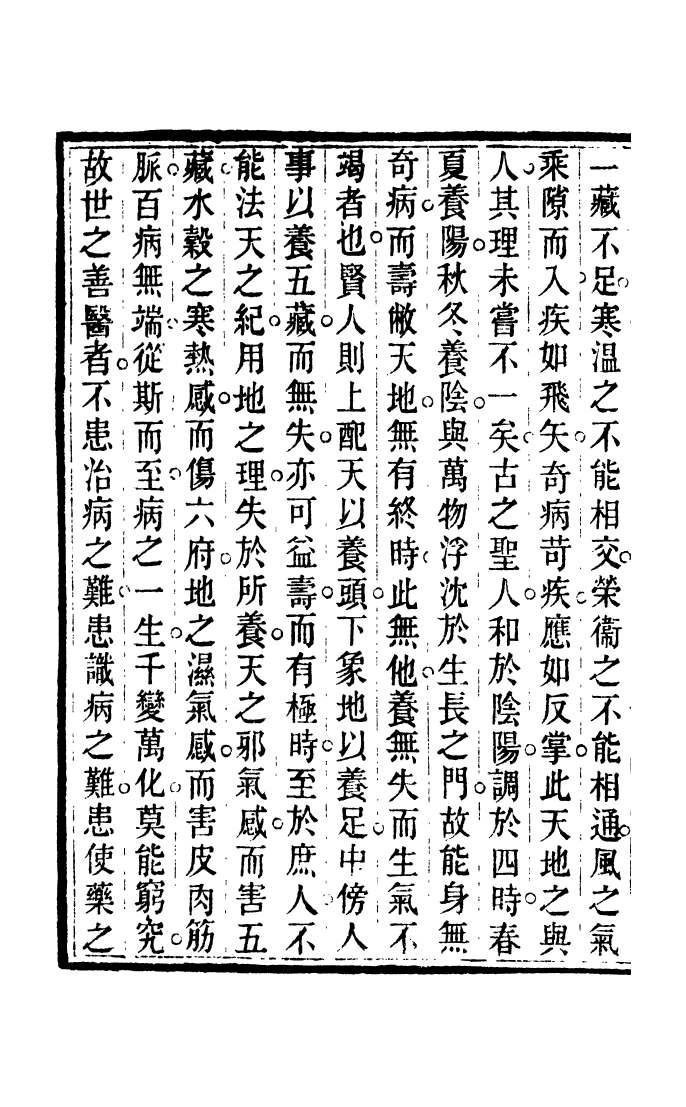 一藏不足寒温之不能相交榮衞之不能相通風之氣
乘隙而入疾如飛矢奇病苛疾應如反掌此天地之與
人其理未嘗不一矣古之聖人和於陰陽調於四時春
夏養陽秋冬養陰與萬物浮沈於生長之門故能身無
奇病而壽敝天地無有終時此無他養無失而生氣不
竭者也賢人則上配天以養頭下象地以養足中傍人
事以養五藏而無失亦可益壽而有極時至於庶人不
能法天之紀用地之理失於所養天之邪氣感而害五
藏水穀之寒熱感而傷六府地之濕氣感而害皮肉筋
脈百病無端從斯而至病之一生千變萬化莫能窮究
故世之善醫者不患治病之難患識病之難患使藥之